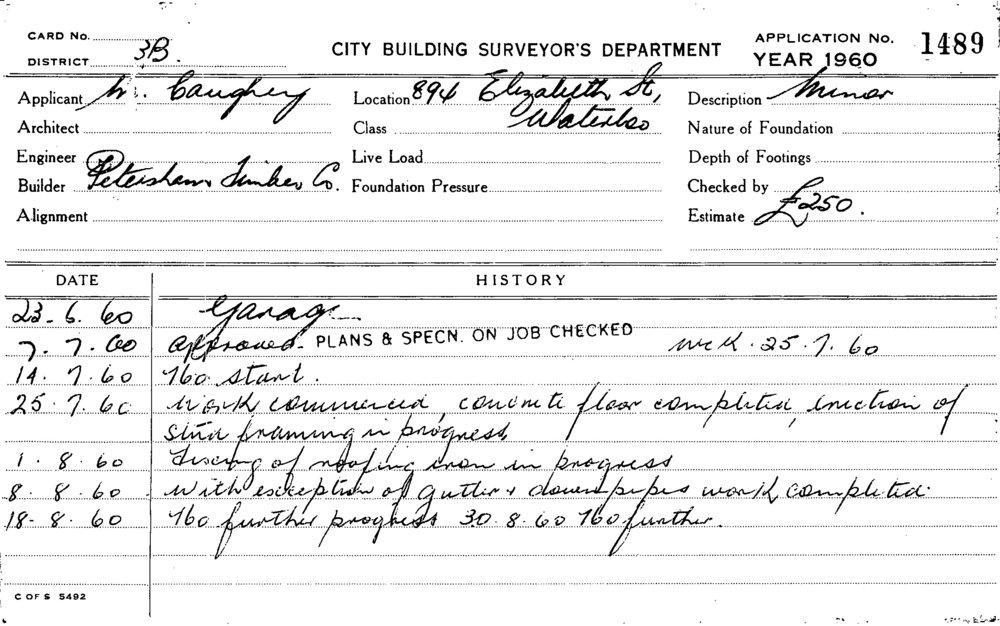 CARD No.
DISTRICT 3B.
CITY BUILDING SURVEYOR'S DEPARTMENT
APPLICATION No. 1489
YEAR 1960
Applicant W. Caughey
Location 894 Elizabeth St,
Waterloo
Description Minor
Architect
Class
Nature of Foundation
Engineer
Live Load
Depth of Footings
Builder Petersham Timber Co.
Foundation Pressure
Checked by
Alignment
Estimate £250.
DATE HISTORY
23.6.60 Garage
7.7.60 Approved. PLANS & SPECN. ON JOB CHECKED 25.7.60
14.7.60 No start.
25.7.60 Work commenced, concrete floor completed, erection of
stud framing in progress
1.8.60 Fixing of roofing iron in progress
8.8.60 With exception of gutter & downpipes work completed.
18.8.60 No further progress 30.8.60 No further.
C OF S 5492